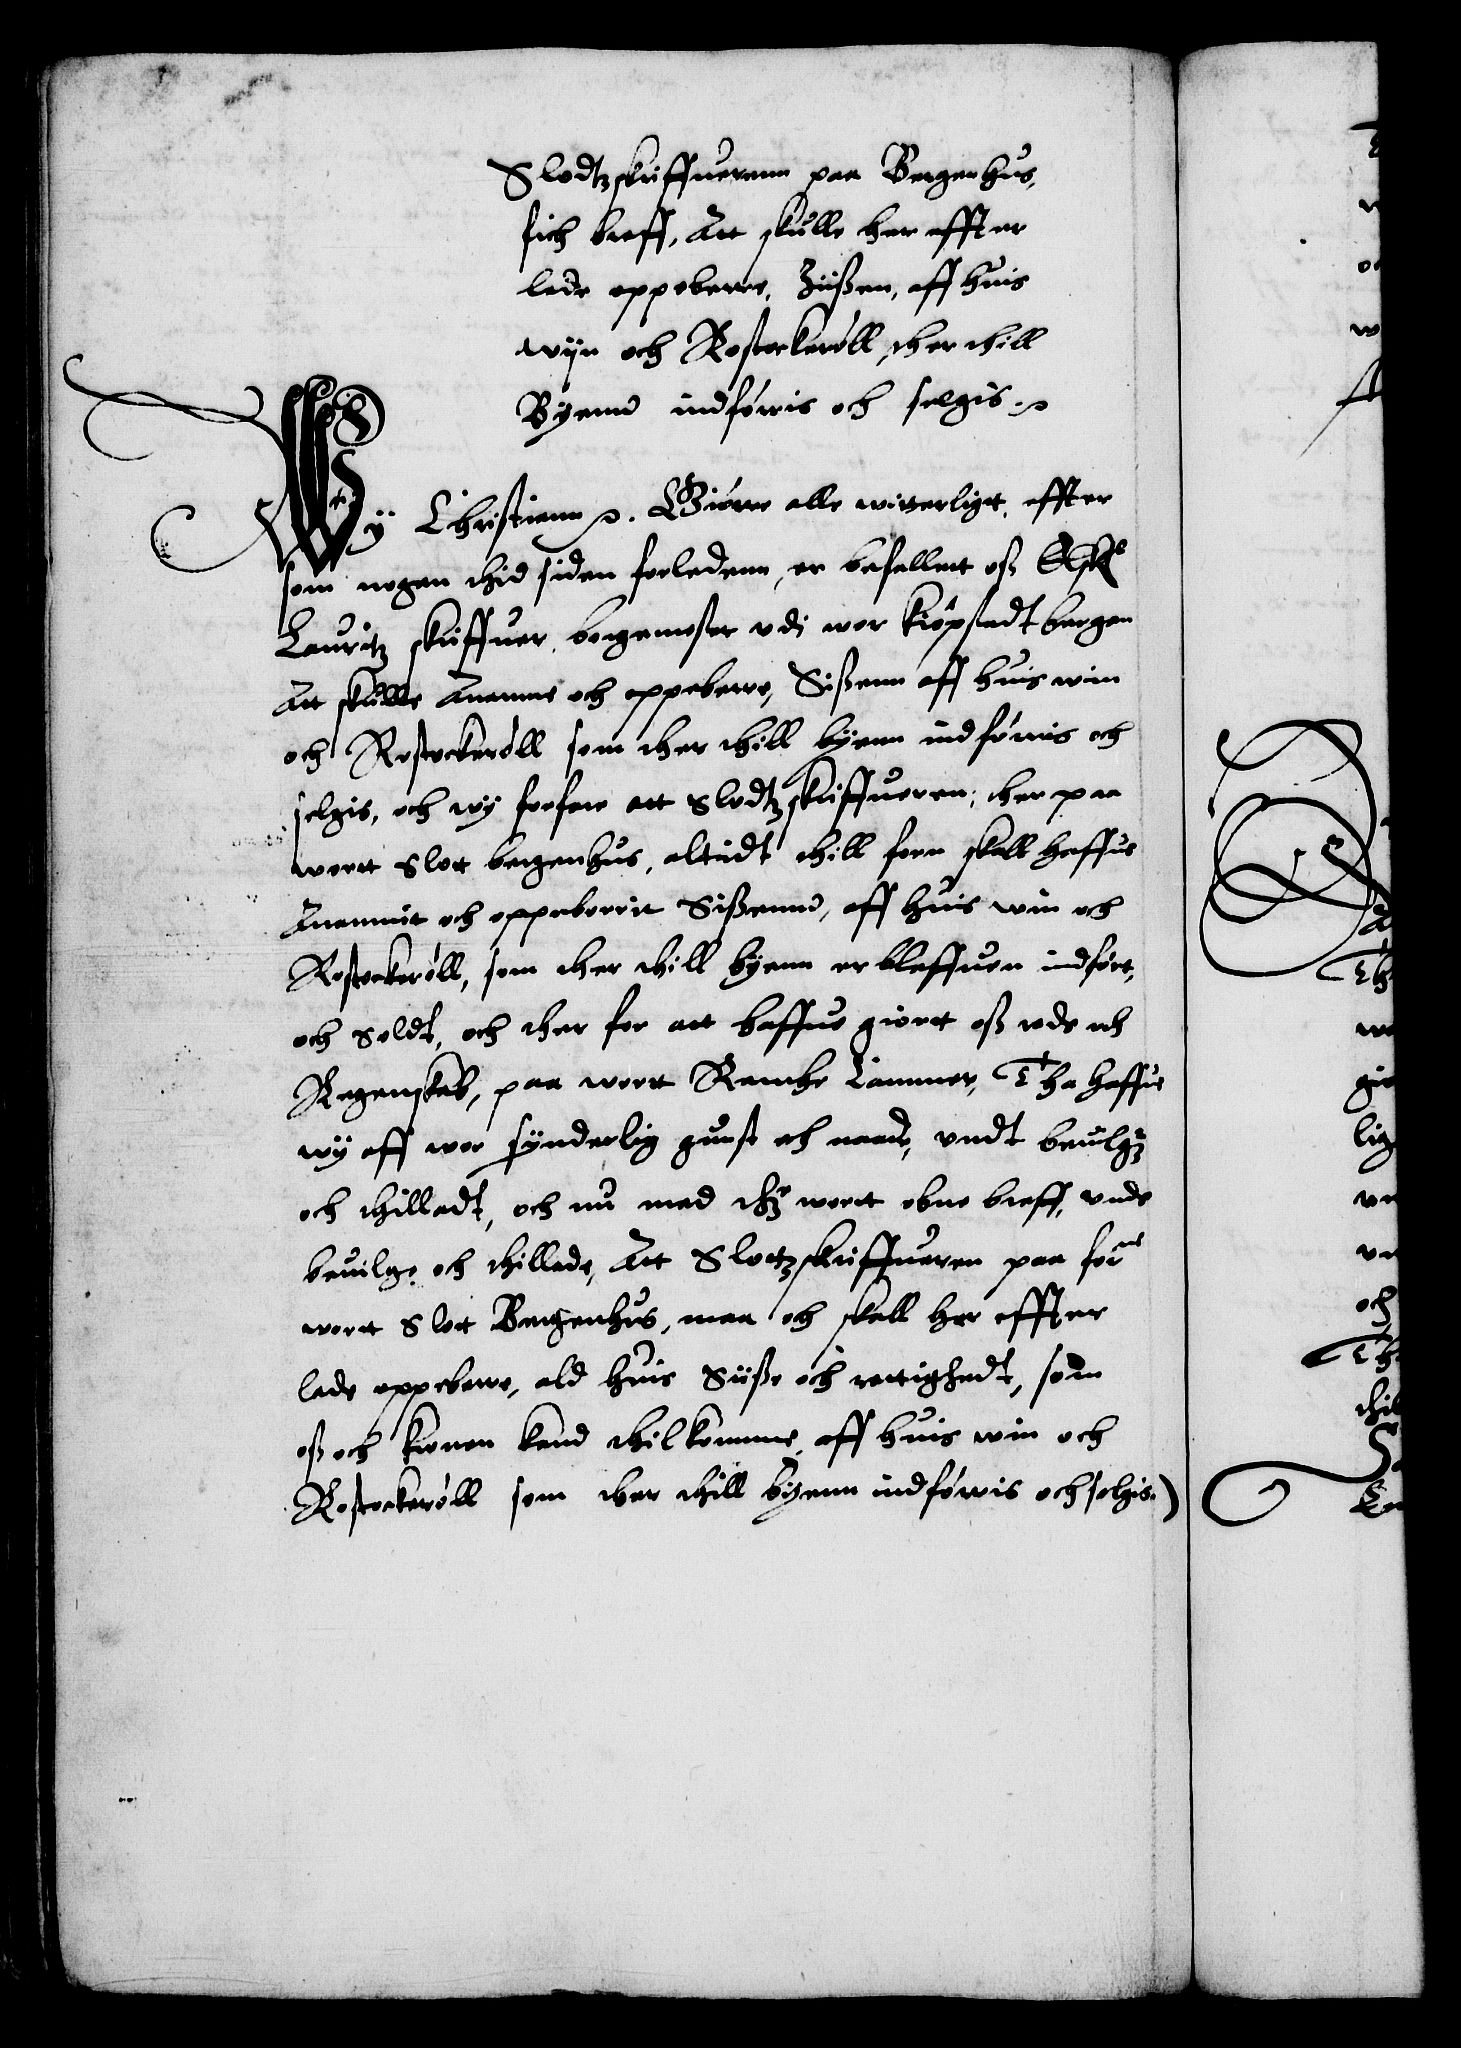 Slodtzskriffuerenn paa Bergenhus,
fich breff, Att skulle her effter
lade oppeberre, Ziißen, aff huis
wijn och Rostockerøll ther thill
Byenn indførris och selgis.
Wy Christiann p. Giørre alle witterligt, effter
som nogen thid siden forledenn, er befallett oß Elske
Lauritz skriffuer, borgemester vdi wor kiøpstadt bergen
Att skulle Anamme och oppeberre, Sißenn aff huis win
och Rostockerøll som ther thill byenn indførris och
selgis, och wy forfare att Slodtzskriffueren, ther paa
wortt Slot bergenhus, altiidt thill forn skall haffue
Anammit och oppeborrit Sißenn, aff huis win och
Rostockerøll, som ther thill byenn er bleffuen indført,
och Soldt, och ther for att haffue giortt oß rede och
Regenskab, paa wortt Renthe Cammer, Tha haffue
wy aff wor synderlig gunst och naade, vndt beuilget
och thilladt, och nu med thette wortt obne breff, vnde
beuilge och thillade, Att Slottzskriffueren paa forne
wortt Slot Bergenhus, maa och skall her effter
lade oppeberre, ald huis Siiße och rettighedt, som
oß och kronen kand thilkomme, aff huis win och
Rostockerøll som ther thill byenn indførris och selgis.